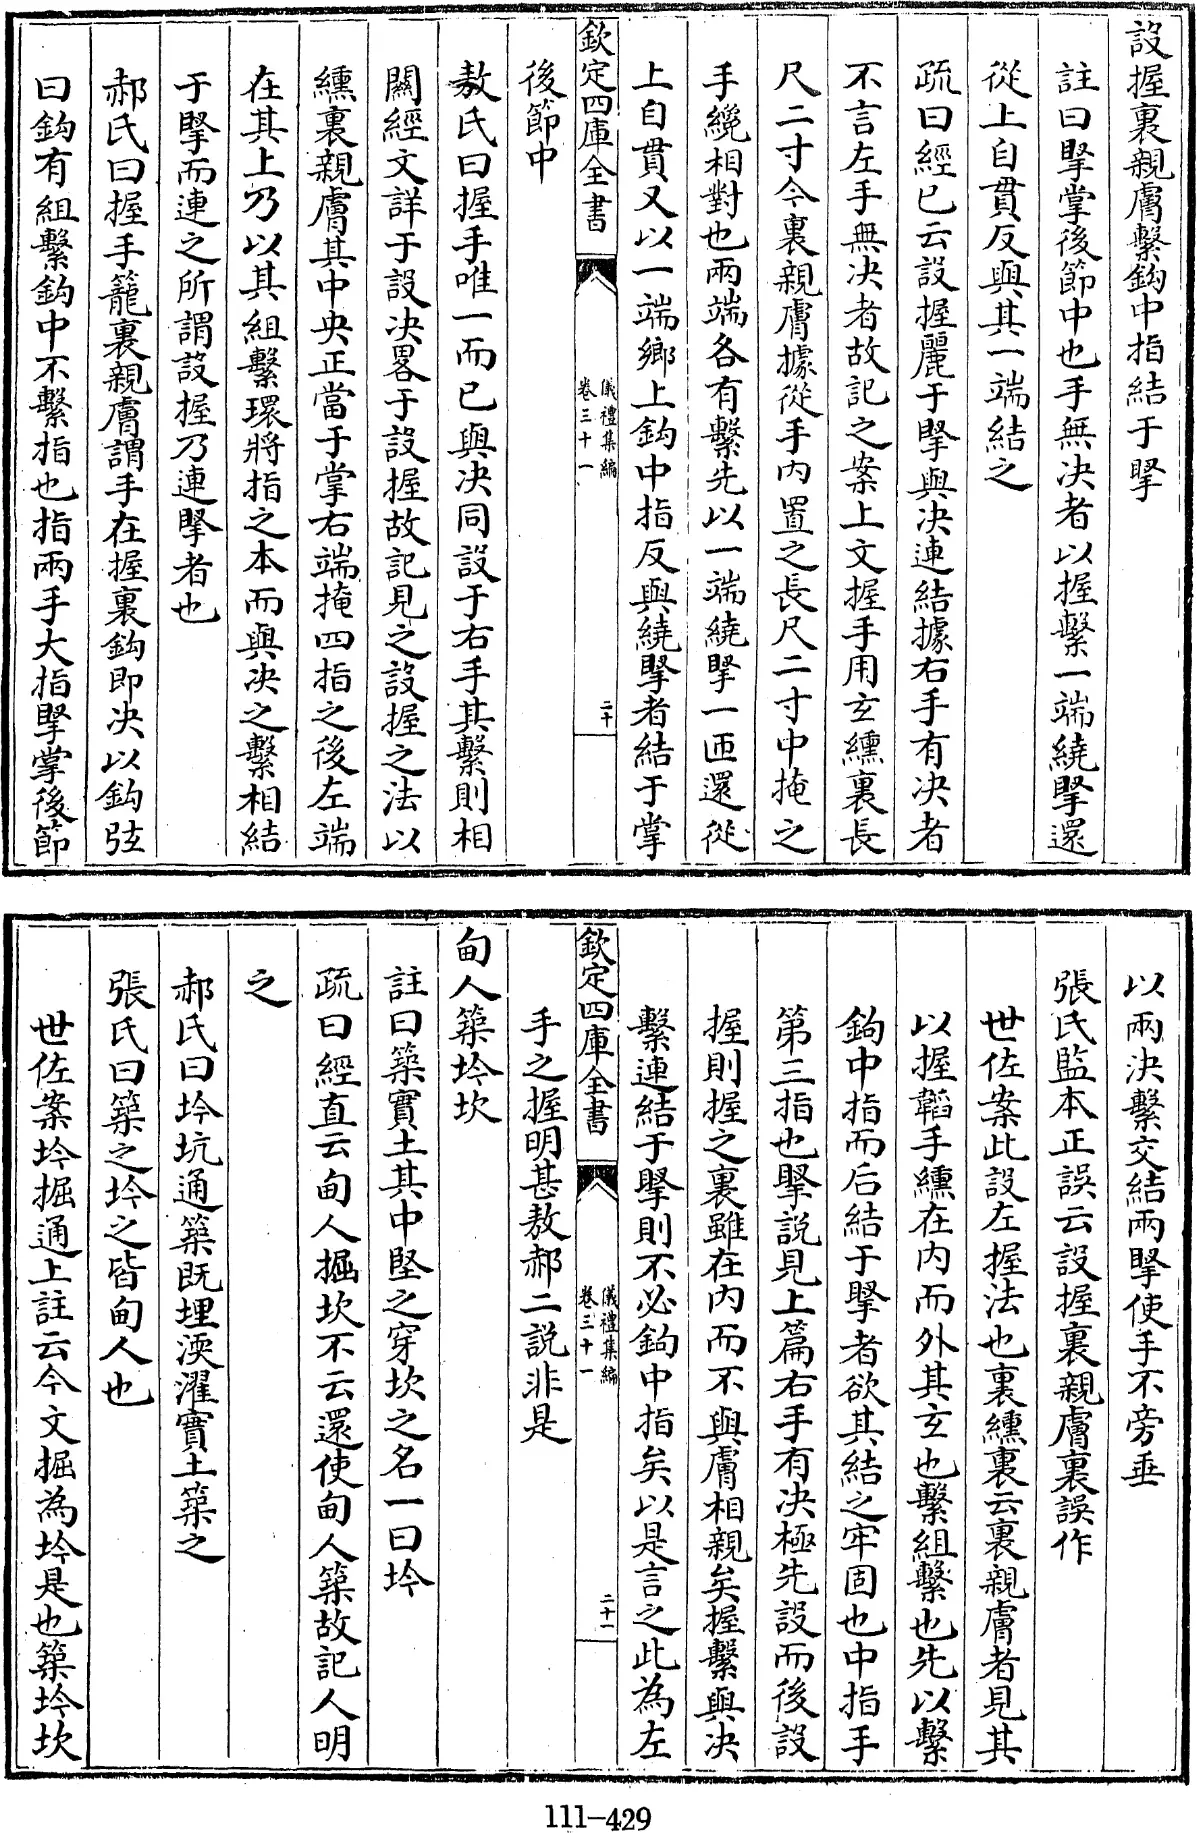 設握裏親膚繫鈎中指結于掔
註曰掔掌後節中也手無决者以握繫一端繞掔還
從上自貫反與其一端結之
疏曰經已云設握麗于掔與决連結據右手有决者
不言左手無决者故記之案上文握手用玄纁裏長
尺二寸今裏親膚據從手内置之長尺二寸中掩之
手纔相對也兩端各有繫先以一端繞掔一匝還從
上自貫又以一端鄉上鈎中指反與繞掔者結于掌
欽定四庫全書
儀禮集編
卷三十一
二十
後節中
敖氏曰握手唯一而已與决同設于右手其繫則相
闗經文詳于設决畧于設握故記見之設握之法以
纁裏親膚其中央正當于掌右端掩四指之後左端
在其上乃以其組繫環將指之本而與决之繫相結
于掔而連之所謂設握乃連掔者也
郝氏曰握手籠裏親膚謂手在握裏鈎即决以鈎弦
曰鈎有組繫鈎中不繫指也指兩手大指掔掌後節
以兩決繫交結兩掔使手不旁垂
張氏監本正誤云設握裏親膚裏誤作
世佐案此設左握法也裏纁裏云裏親膚者見其
以握韜手纁在内而外其玄也繫組繫也先以繫
鉤中指而后結于掔者欲其結之牢固也中指手
第三指也掔説見上篇右手有决極先設而後設
握則握之裏雖在内而不與膚相親矣握繫與决
繫連結于掔則不必鉤中指矣以是言之此為左
欽定四庫全書
儀禮集編
卷三十一
二十一
手之握明甚敖郝二説非是
甸人築坅坎
註曰築實土其中堅之穿坎之名一曰坅
疏曰經直云甸人掘坎不云還使甸人築故記人明
之
郝氏曰坅坑通築既埋渜濯實土築之
張氏曰築之坅之皆甸人也
世佐案坅掘通上註云今文掘為坅是也築坅坎
111-429